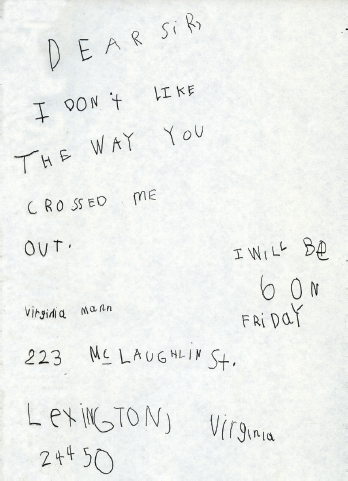 DEAR SIR,
I DON't LIKE
THE WAY YOU
CROSSED ME
OUT.
I WILL BE
6 ON
FRIDAY
Virginia Mann
223 McLAUGHLIN St.
LexiNGTON, Virginia
24450